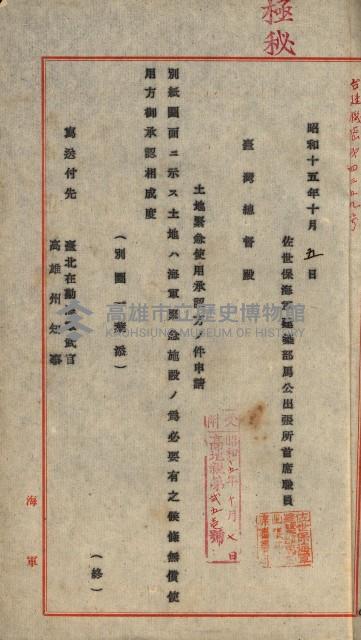 極秘
昭和十五年十月 五 日
佐世保海軍建築部馬公出張所首席職員
臺灣總督殿
土地緊急使用承認方ノ件申請
別紙圖面ニ示ス土地ハ海軍緊急施設ノ爲必要有之候條無償使
用方御承認相成度
(別圖一葉添)
(終)
寫送付先 臺北在勤海軍武官
高雄州知事
海軍
昭和15年十月七日
高雄市立歷史博物館
KAOHSIUNG MUSEUM OF HISTORY